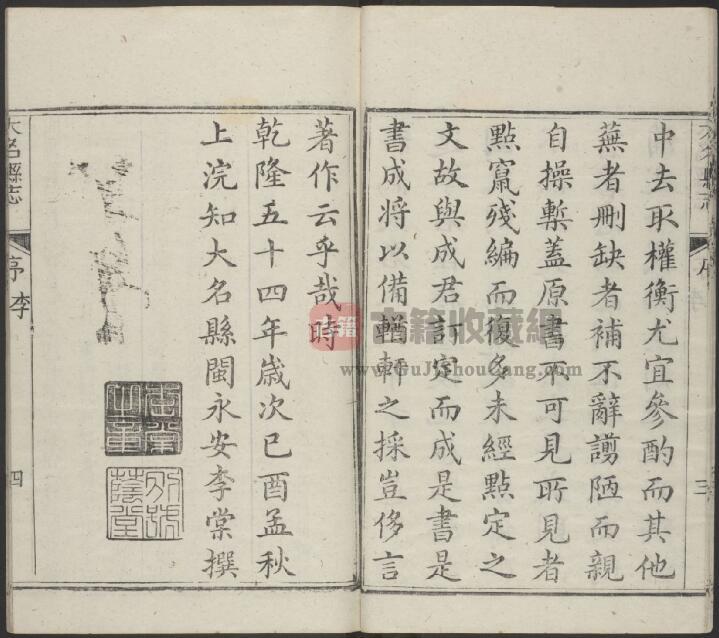 中去取權衡尤宜參酌而其他
蕪者刪缺者補不辭謭陋而親
自操槧蓋原書不可見所見者
點竄殘編而復多未經點定之
文故與成君訂定而成是書是
書成將以備輶軒之採豈侈言
著作云乎哉時
乾隆五十四年歲次已酉孟秋
上浣知大名縣閩永安李棠撰
大名縣志
序
李
四
三
古籍收藏網
www.GuJiShouCang.com